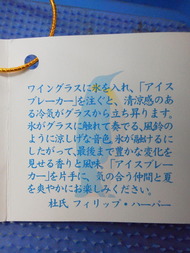 ワイングラスに氷を入れ、「アイス
ブレーカー」を注ぐと、清涼感のあ
る冷気がグラスから立ち昇ります。
氷がグラスに触れて奏でる、風鈴の
ように涼しげな音色。氷が融けるに
したがって、最後まで豊かな変化を
見せる香りと風味。「アイスブレー
カー」を片手に、気の合う仲間と夏
を爽やかにお楽しみください。
杜氏 フィリップ・ハーパー